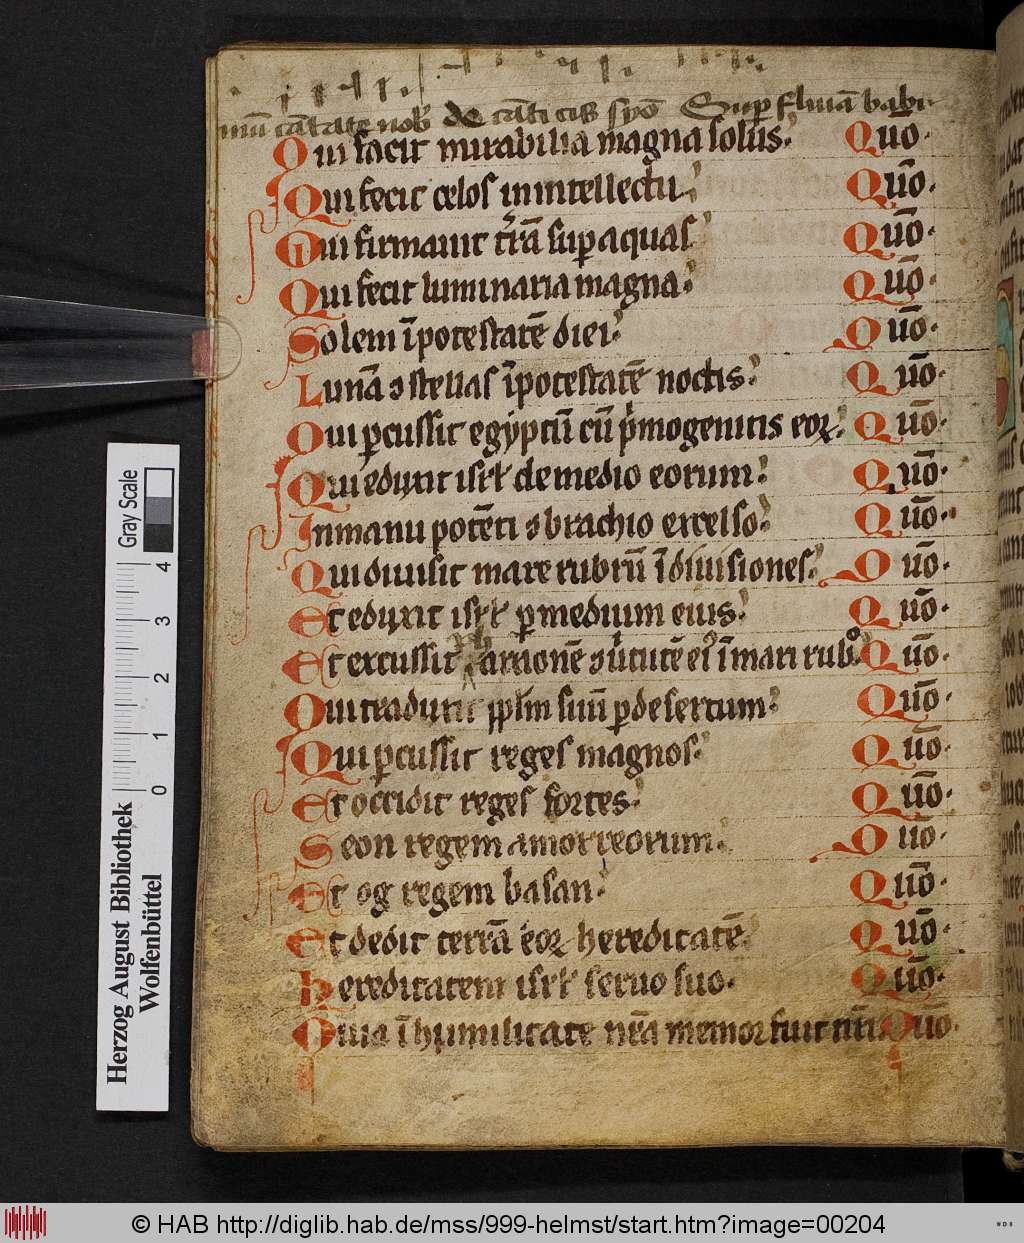 mū cātate nob de cāticis syō Sup flumā babi
Qui facit mirabilia magna solus. Quō.
Qui fecit celos in intellectu. Quō.
Qui firmauit trrā sup aquas Quō.
Qui fecit luminaria magna. Quō.
Solem ī potestatē diei. Quō.
Lunā ɔ stellas ī potestatē noctis. Quō.
Qui pcussit egyptū cū pmogenitis eoꝝ. Quō.
Qui eduxit isrł de medio eorum. Quō.
In manu potēti ɔ brachio excelso. Quō.
Qui diuisit mare rubrū ī diuisiones. Quō.
Et eduxit isrł p medium eius. Quō.
Et excussit pharaonē ɔ uirtutē eiꝰ ī mari rubº. Quō.
Qui traduxit pplm suū p desertum. Quō.
Qui pcussit reges magnos. Quō.
Et occidit reges fortes. Quō.
Seon regem amorreorum. Quō.
Et og regem basan. Quō.
Et dedit terrā eoꝝ hereditatē. Quō.
Hereditatem isrł seruo suo. Quō.
Quia ī humilitate nrā memor fuit nrī Quō.
Gray Scale
4 3 2 1 0
Herzog August Bibliothek
Wolfenbüttel
© HAB http://diglib.hab.de/mss/999-helmst/start.htm?image=00204
WDB